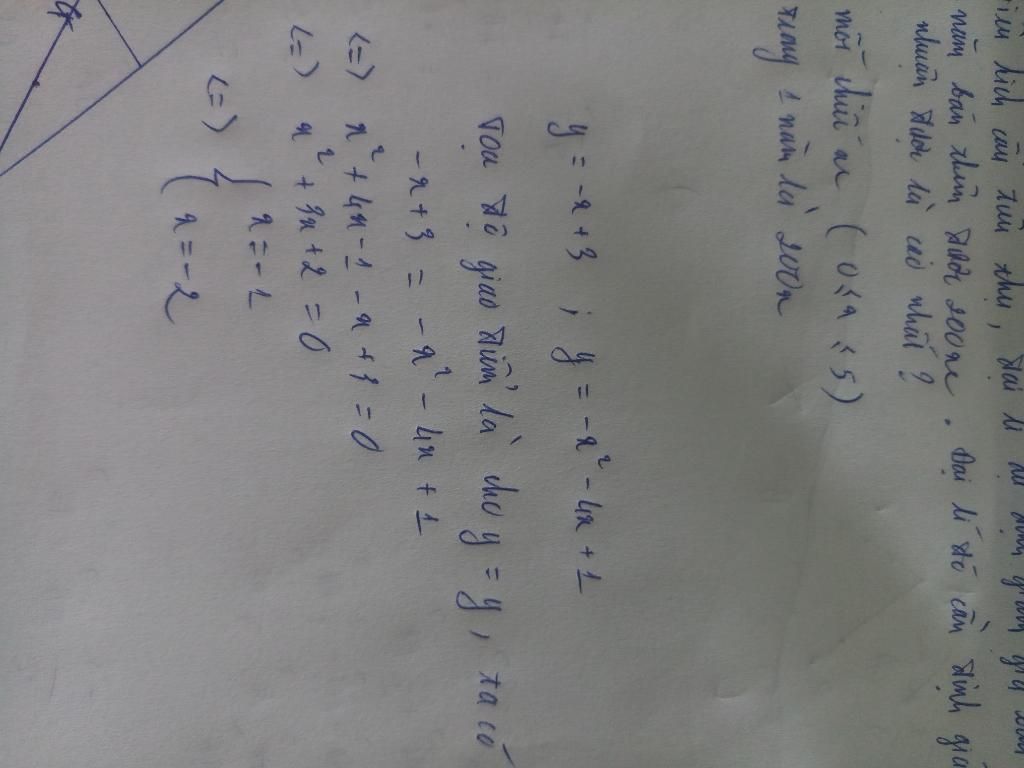 kích cầu tiêu thụ, đại lí dự định giảm giá bán
năm bán thêm được 200x. Đại lí đó cần định giá
nhuận được là cao nhất?
mới nhất x ( 0 ≤ x ≤ 5 )
trong 1 năm là 200x
y = -x + 3 ; y = -x² - 4x + 1
Toạ độ giao điểm là cho y = y, ta có
-x + 3 = -x² - 4x + 1
<=> x² + 4x - 1 - x + 3 = 0
<=> x² + 3x + 2 = 0
<=> { x = -1
x = -2